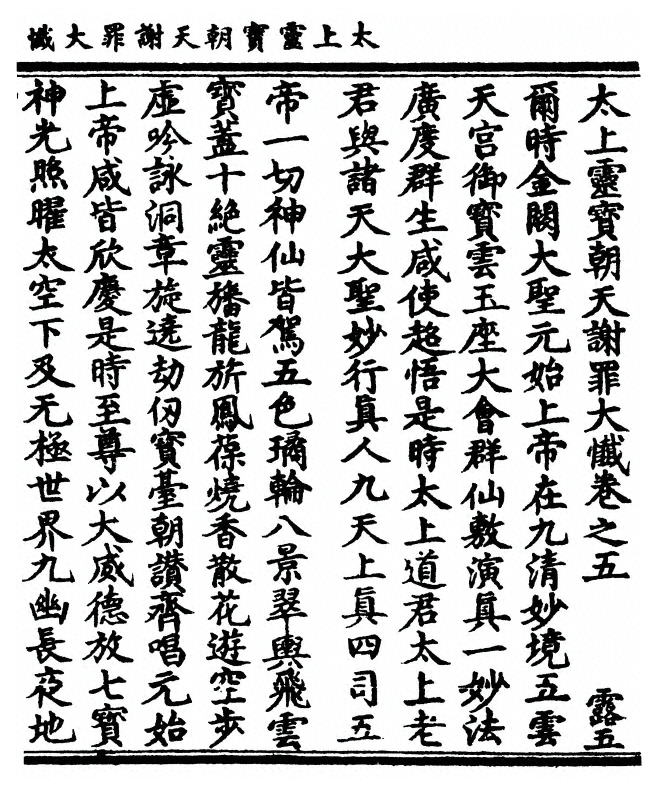 太上靈寶朝天謝罪大懺
太上靈寶朝天謝罪大懺卷之五 露五
爾時金闕大聖元始上帝在九清妙境五雲
天宮御寶雲玉座大會群仙敷演眞一妙法
廣度群生咸使超悟是時太上道君太上老
君與諸天大聖妙行眞人九天上眞四司五
帝一切神仙皆駕五色璚輪八景翠輿飛雲
寳蓋十絶靈旛龍旂鳳葆燒香散花遊空步
虛吟詠洞章旋遶劫仞寶臺朝讚齊唱元始
上帝咸皆欣慶是時至尊以大威德放七寶
神光照曜太空下及无極世界九幽長夜地